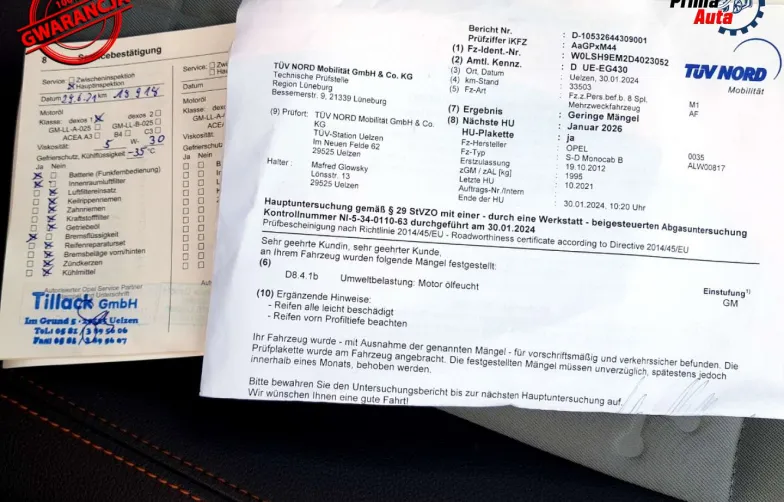 GWARANCJA
100%
Prima
Auta
8 Servicebestätigung
Service: Zwischeninspektion
Hauptinspektion
Datum 24.6.21 km 13918
Motoröl
Klasse: dexos 1 dexos 2
GM-LL-A-025 GM-LL-B-025
ACEA A3 B4 C3
Viskosität: 5 W- 30
Gefrierschutz, Kühlflüssigkeit -35 °C
Ja Nein
Batterie (Funkfernbedienung)
Innenraumluftfilter
Luftfiltereinsatz
Keilrippenriemen
Zahnriemen
Kraftstofffilter
Getriebeöl
Bremsflüssigkeit
Reifenreparaturset
Bremsbeläge vorn/hinten
Zündkerzen
Kühlmittel
Autorisierter Opel Service Partner
Tillack GmbH
Im Grund 5 · 29525 Uelzen
Tel.: 05 81 / 3 89 56 06
Fax: 05 81 / 3 89 56 07
Service:
Datum
Motoröl
Klasse:
GM-LL-A
ACEA A
Viskosität:
Gefrierschutz
Ja Nein
TÜV NORD Mobilität GmbH & Co. KG
Technische Prüfstelle
Region Lüneburg
Bessemerstr. 9, 21339 Lüneburg
(9) Prüfort: TÜV NORD Mobilität GmbH & Co.
KG
TÜV-Station Uelzen
Im Neuen Felde 62
29525 Uelzen
Halter : Mafred Glowsky
Lönsstr. 13
29525 Uelzen
Bericht Nr. : D-10532644309001
Prüfziffer iKFZ : AaGPxM44
(1) Fz-Ident.-Nr. : W0LSH9EM2D4023052
(2) Amtl. Kennz. : D UE-EG430
(3) Ort, Datum : Uelzen, 30.01.2024
(4) km-Stand : 33503
(5) Fz-Art : Fz.z.Pers.bef.b. 8 Spl. M1
Mehrzweckfahrzeug AF
(7) Ergebnis : Geringe Mängel
(8) Nächste HU : Januar 2026
HU-Plakette : ja
Fz-Hersteller : OPEL 0035
Fz-Typ : S-D Monocab B ALW00817
Erstzulassung : 19.10.2012
zGM / zAL [kg] : 1995
Letzte HU : 10.2021
Auftrags-Nr./Intern
Ende der HU : 30.01.2024, 10:20 Uhr
TÜV NORD
Mobilität
Hauptuntersuchung gemäß § 29 StVZO mit einer - durch eine Werkstatt - beigesteuerten Abgasuntersuchung
Kontrollnummer NI-5-34-0110-63 durchgeführt am 30.01.2024
Prüfbescheinigung nach Richtlinie 2014/45/EU - Roadworthiness certificate according to Directive 2014/45/EU
Sehr geehrte Kundin, sehr geehrter Kunde,
an Ihrem Fahrzeug wurden folgende Mängel festgestellt:
(6) Einstufung 1)
D8.4.1b Umweltbelastung: Motor ölfeucht GM
(10) Ergänzende Hinweise:
- Reifen alle leicht beschädigt
- Reifen vorn Profiltiefe beachten
Ihr Fahrzeug wurde - mit Ausnahme der genannten Mängel - für vorschriftsmäßig und verkehrssicher befunden. Die
Prüfplakette wurde am Fahrzeug angebracht. Die festgestellten Mängel müssen unverzüglich, spätestens jedoch
innerhalb eines Monats, behoben werden.
Bitte bewahren Sie den Untersuchungsbericht bis zur nächsten Hauptuntersuchung auf.
Wir wünschen Ihnen eine gute Fahrt!